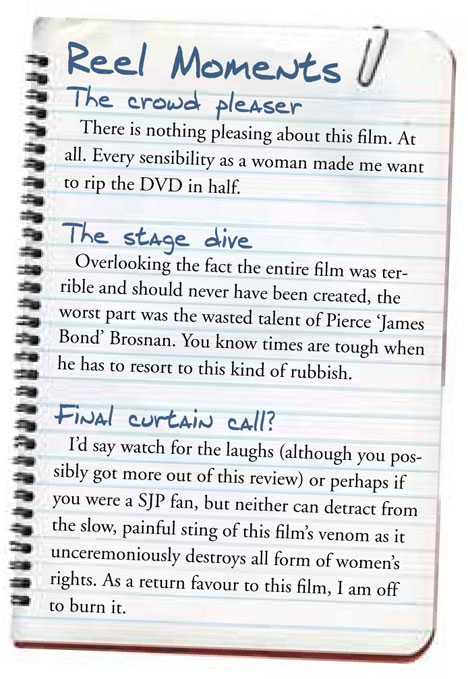 Reel Moments
The crowd pleaser
There is nothing pleasing about this film. At
all. Every sensibility as a woman made me want
to rip the DVD in half.
The stage dive
Overlooking the fact the entire film was ter-
rible and should never have been created, the
worst part was the wasted talent of Pierce ‘James
Bond’ Brosnan. You know times are tough when
he has to resort to this kind of rubbish.
Final curtain call?
I’d say watch for the laughs (although you pos-
sibly got more out of this review) or perhaps if
you were a SJP fan, but neither can detract from
the slow, painful sting of this film’s venom as it
unceremoniously destroys all form of women’s
rights. As a return favour to this film, I am off
to burn it.